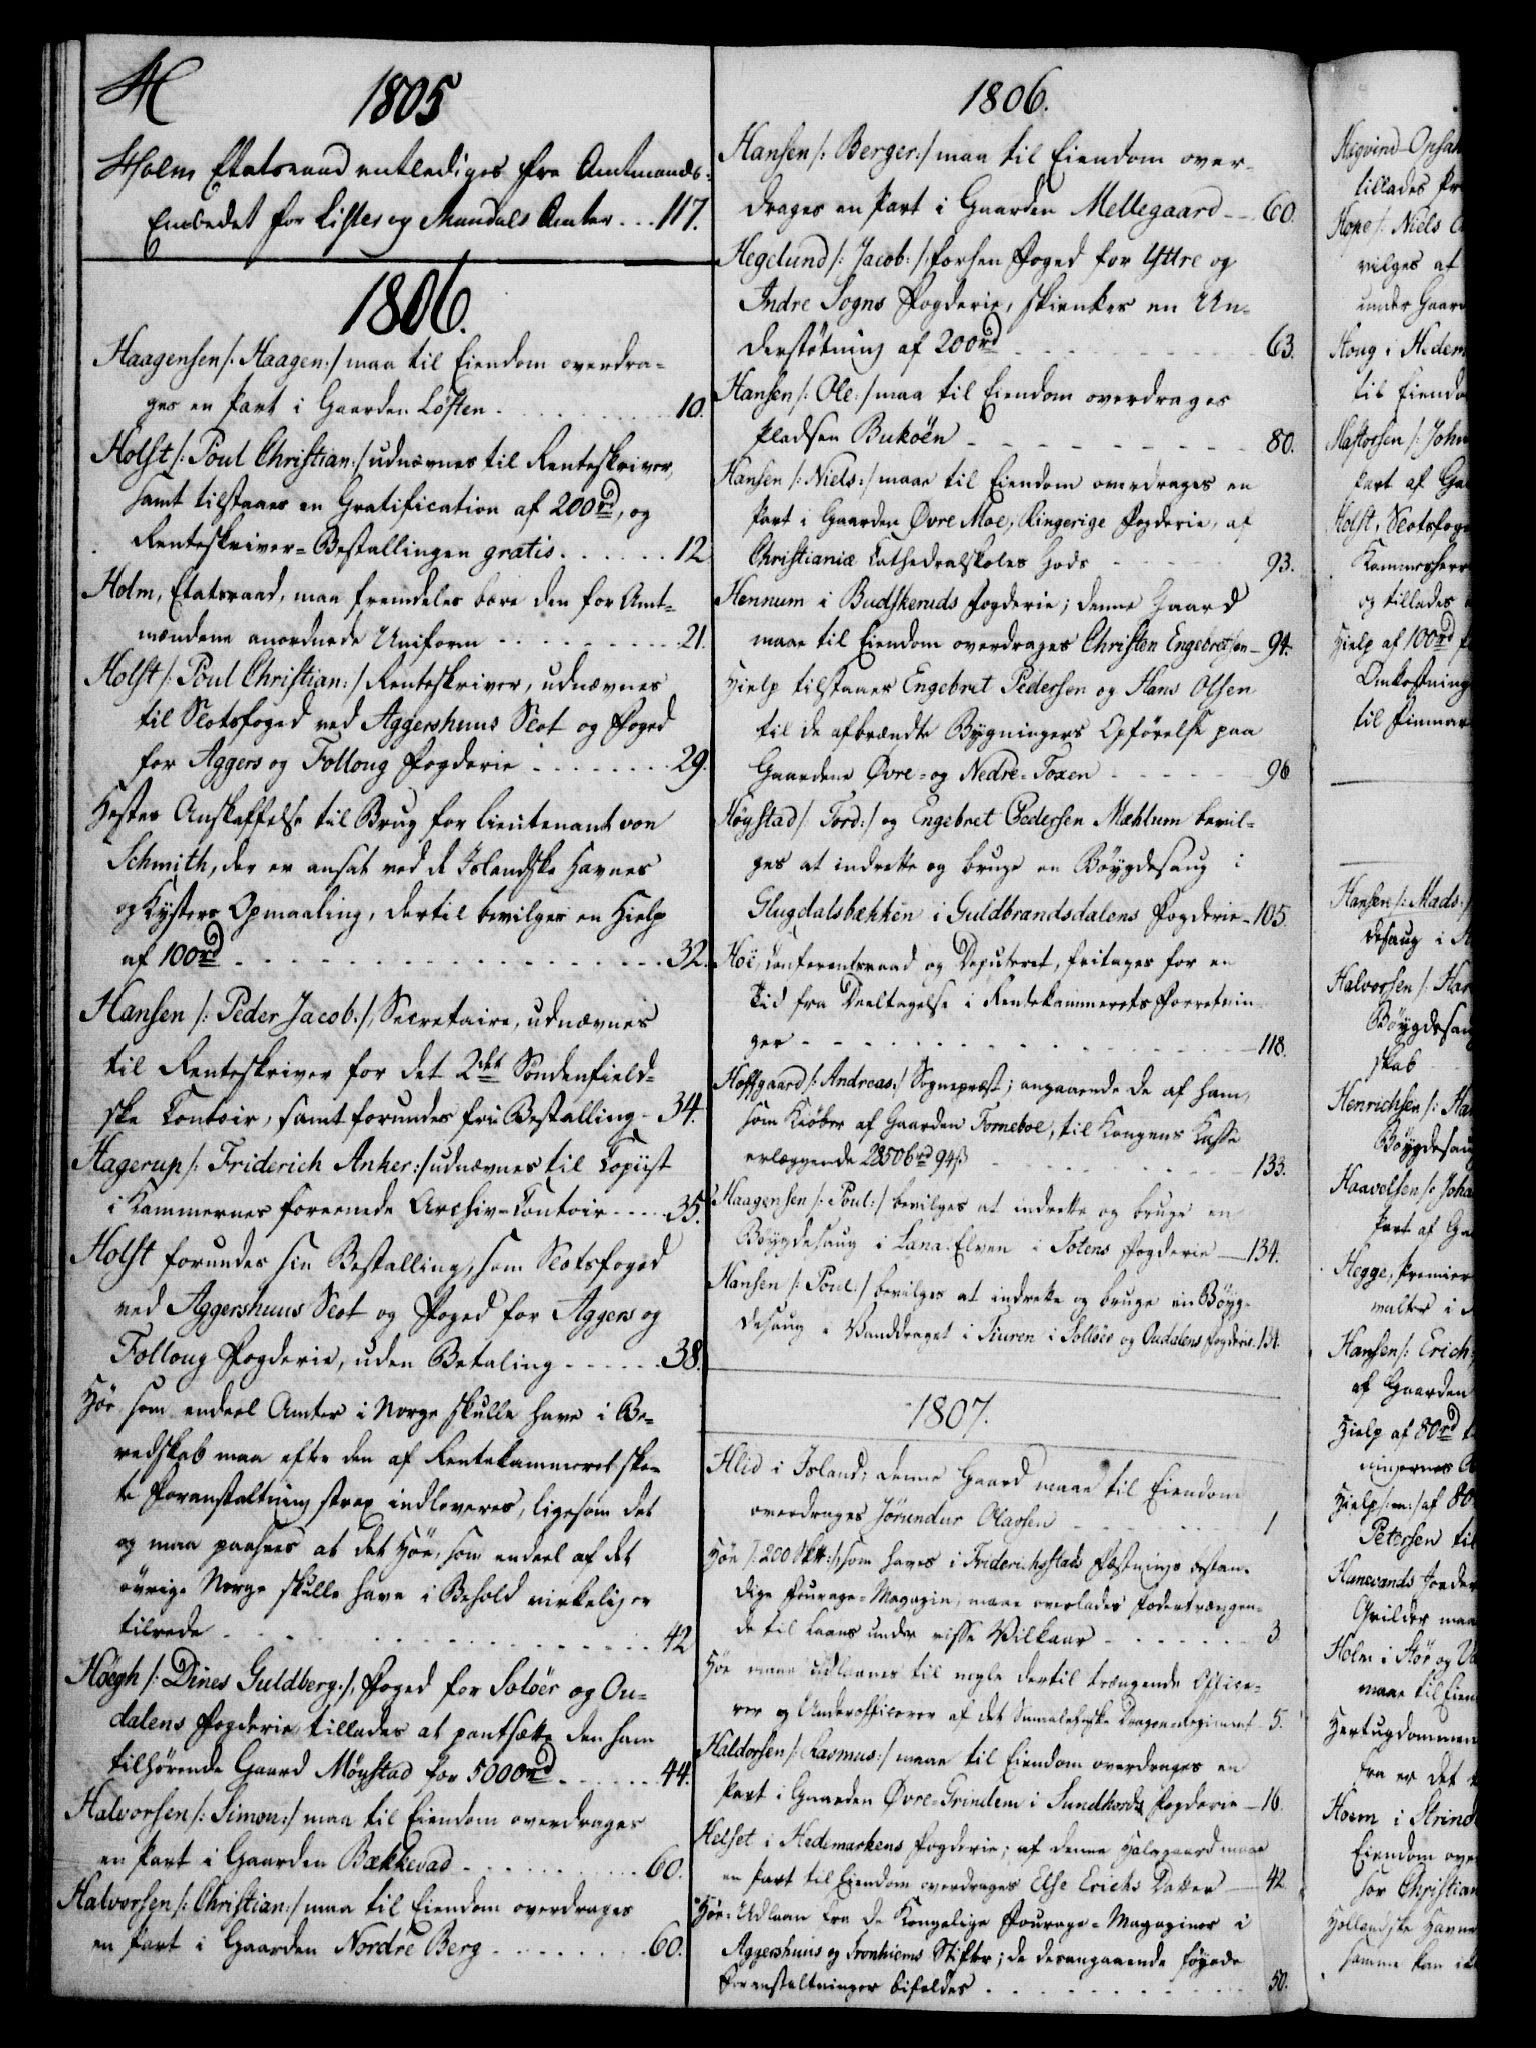 H
1805
Holm Etatsraad entlediges fra Amtmands-
Embedet for Lister og Mandals Amter . . . 117.
1806.
Haagensen /: Haagen :/ maa til Eiendom overdra-
ges en Part i Gaarden Løften . . . 10.
Holst /: Poul Christian :/ udnævnes til Renteskriver,
samt tilstaaes en Gratification af 200 rd, og
Renteskriver-Bestallingen gratis . . . 12
Holm, Etatsraad, maa fremdeles bære den for Amt-
mændene anordnede Uniform . . . 21.
Holst /: Poul Christian :/ Renteskriver, udnævnes
til Slotsfoged ved Aggershuus Slot og Foged
for Aggers og Folloug Fogderie . . . 29.
Hestes Anskaffelse til Brug for Lieutenant von
Schmith, der er ansat ved de Islandske Havnes
og Kysters Opmaaling, dertil bevilges en Hielp
af 100 rd . . . 32.
Hansen /: Peder Jacob :/, Secretaire, udnævnes
til Renteskriver for det 2det Söndenfield-
ske Contoir, samt forundes fri Bestalling - 34.
Hagerup /: Friderich Anker :/ udnævnes til Copiist
i Kammernes foreenede Archiv-Contoir . . . 35.
Holst forundes sin Bestalling, som Slotsfoged
ved Aggershuus Slot og Foged for Aggers og
Folloug Fogderie, uden Betaling . . . 38.
Höe som endeel Amter i Norge skulle have i Be-
redskab maa efter den af Rentekammeret ske-
te Foranstaltning strax indleveres, ligesom det
og maa paasees at det Höe, som endeel af det
övrige Norge skulle have i Behold virkelig er
tilrede . . . 42
Höegh /: Dines Guldberg :/, Foged for Solöer og Ou-
dalens Fogderie, tillades at pantsætte den ham
tilhörende Gaard Möystad for 5000 rd . . . 44.
Halvorsen /: Simon :/ maa til Eiendom overdrages
en Part i Gaarden Bækkevad . . . 60.
Halvorsen /: Christian :/ maa til Eiendom overdrages
en Part i Gaarden Nordre Berg . . . 60.
1806.
Hansen /: Berger :/ maa til Eiendom over-
drages en Part i Gaarden Mellegaard . . . 60.
Hegelund /: Jacob :/, forhen Foged for Yttre og
Indre Sogns Fogderie, skienkes en Un-
derstøtning af 200 rd . . . 63.
Hansen /: Ole :/ maa til Eiendom overdrages
Pladsen Buköen . . . 80.
Hansen /: Niels :/ maae til Eiendom overdrages en
Part i Gaarden Øvre Moe, Ringerige Fogderie, af
Christianiæ Cathedralskoles Gods . . . 93.
Hennum i Budskeruds Fogderie; denne Gaard
maae til Eiendom overdrages Christen Engebretsen - 94.
Hielp tilstaaes Engebret Pedersen og Hans Olsen
til de afbrændte Bygningers Opförelse paa
Gaardene Øvre- og Nedre-Toxen . . . 96
Høystad /: Tord :/ og Engebret Pedersen Mæhlum bevil-
ges at indrette og bruge en Böygdesaug i
Glugdalsbekken i Guldbrandsdalens Fogderie - 105.
Hoë, Conferentsraad og Deputeret, fritages for en
Tid fra Deeltagelse i Rentekammerets Forretnin-
ger . . . 118.
Hoffgaard /: Andreas :/ Sognepræst; angaaende de af ham,
som Kiöber af Gaarden Torneboe, til Kongens Kasse
erlæggende 23506 rd 94 ß . . . 133.
Haagensen /: Poul :/ bevilges at indrette og bruge en
Böygdesaug i Lana-Elven i Totens Fogderie - 134.
Hansen /: Poul :/ bevilges at indrette og bruge en Böyg-
desaug i Vanddraget i Fiuren i Solloer og Oudalens Fogderie. 134.
1807.
Hlid i Island; denne Gaard maae til Eiendom
overdrages Jörundur Olavsen . . . 1
Höe /: 200 Sk℔ :/, som haves i Friderichsstads Fæstnings bestan-
dige Fourage-Magazin, maae overlades Fodertrængen-
de til Laans under visse Vilkaar . . . 3
Höe maae udlaanes til nogle dertil trængende Office-
rer og Underofficerer af det Smaalehnske Dragonregiment - 5.
Haldorsen /: Rasmus :/ maae til Eiendom overdrages en
Part i Gaarden Øvre-Grindem i Sundhords Fogderie - 16.
Helset i Hedemarkens Fogderie; af denne Halvgaard maae
en Part til Eiendom overdrages Else Erichs Datter - 42.
Höe-Udlaan fra de Kongelige Fourage-Magaziner i
Aggershuus og Tronhiems Stifter; de desangaaende föyede
Foranstaltninger bifaldes . . . 50.
tillades
Hope /: Niels
vilges af
under Gaard
Houg i Hedem
til Eiendo
Hastorsen /: John
Part af Ga
Holst, Slotsfoge
Kammerherr
og tillades
Hielp af 100 rd
Omkostning
til Finmar
Hansen /: Mads :/
desaug i
Halvorsen /: Har
Böygdesau
skab
Henrichsen /: Ha
Böygdesau
Haavelsen /: Joha
Part af Ga
Hegge, Premier
malter i
Hansen /: Erich
af Gaarden
Hielp af 80 rd
ningernes
Hielp /: m :/ af 80
Petersen til
Hanevands
Gvilder maa
Holm i Stör og
maae til Eien
Hertugdommen
fra er det
Hoem i Strind
Eiendom over
sor Christian
Hollandske Havne
samme kan